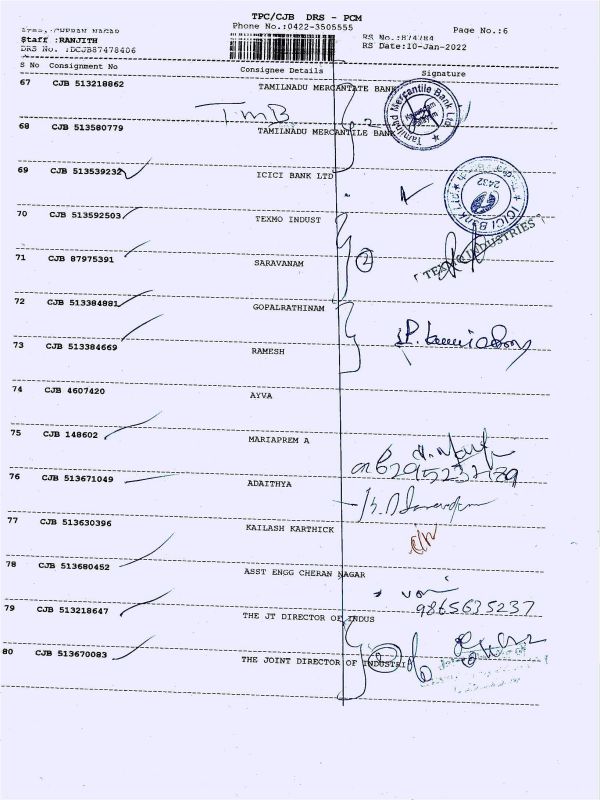 TPC/CJB DRS - PCM
Phone No.:0422-3505555
Page No.:6
Area.:CHERAN NAGAR
Staff :RANJITH
DRS No. :DCJB87478406
RS No.:874784
RS Date:10-Jan-2022
S No Consignment No Consignee Details Signature
67 CJB 513218862 TAMILNADU MERCANTATE BANK
Tamilnad Mercantile Bank Ltd
TMB 2
68 CJB 513580779 TAMILNADU MERCANTILE BANK
69 CJB 513539232 ICICI BANK LTD
ICICI Bank Ltd
2432
70 CJB 513592503 TEXMO INDUST
"TEXMO INDUSTRIES"
71 CJB 87975391 SARAVANAM 2
72 CJB 513384881 GOPALRATHINAM
73 CJB 513384669 RAMESH
74 CJB 4607420 AYVA
75 CJB 148602 MARIAPREM A
76 CJB 513671049 ADAITHYA
77 CJB 513630396 KAILASH KARTHICK
78 CJB 513680452 ASST ENGG CHERAN NAGAR
9865635237
79 CJB 513218647 THE JT DIRECTOR OF INDUS
80 CJB 513670083 THE JOINT DIRECTOR OF INDUSTRI